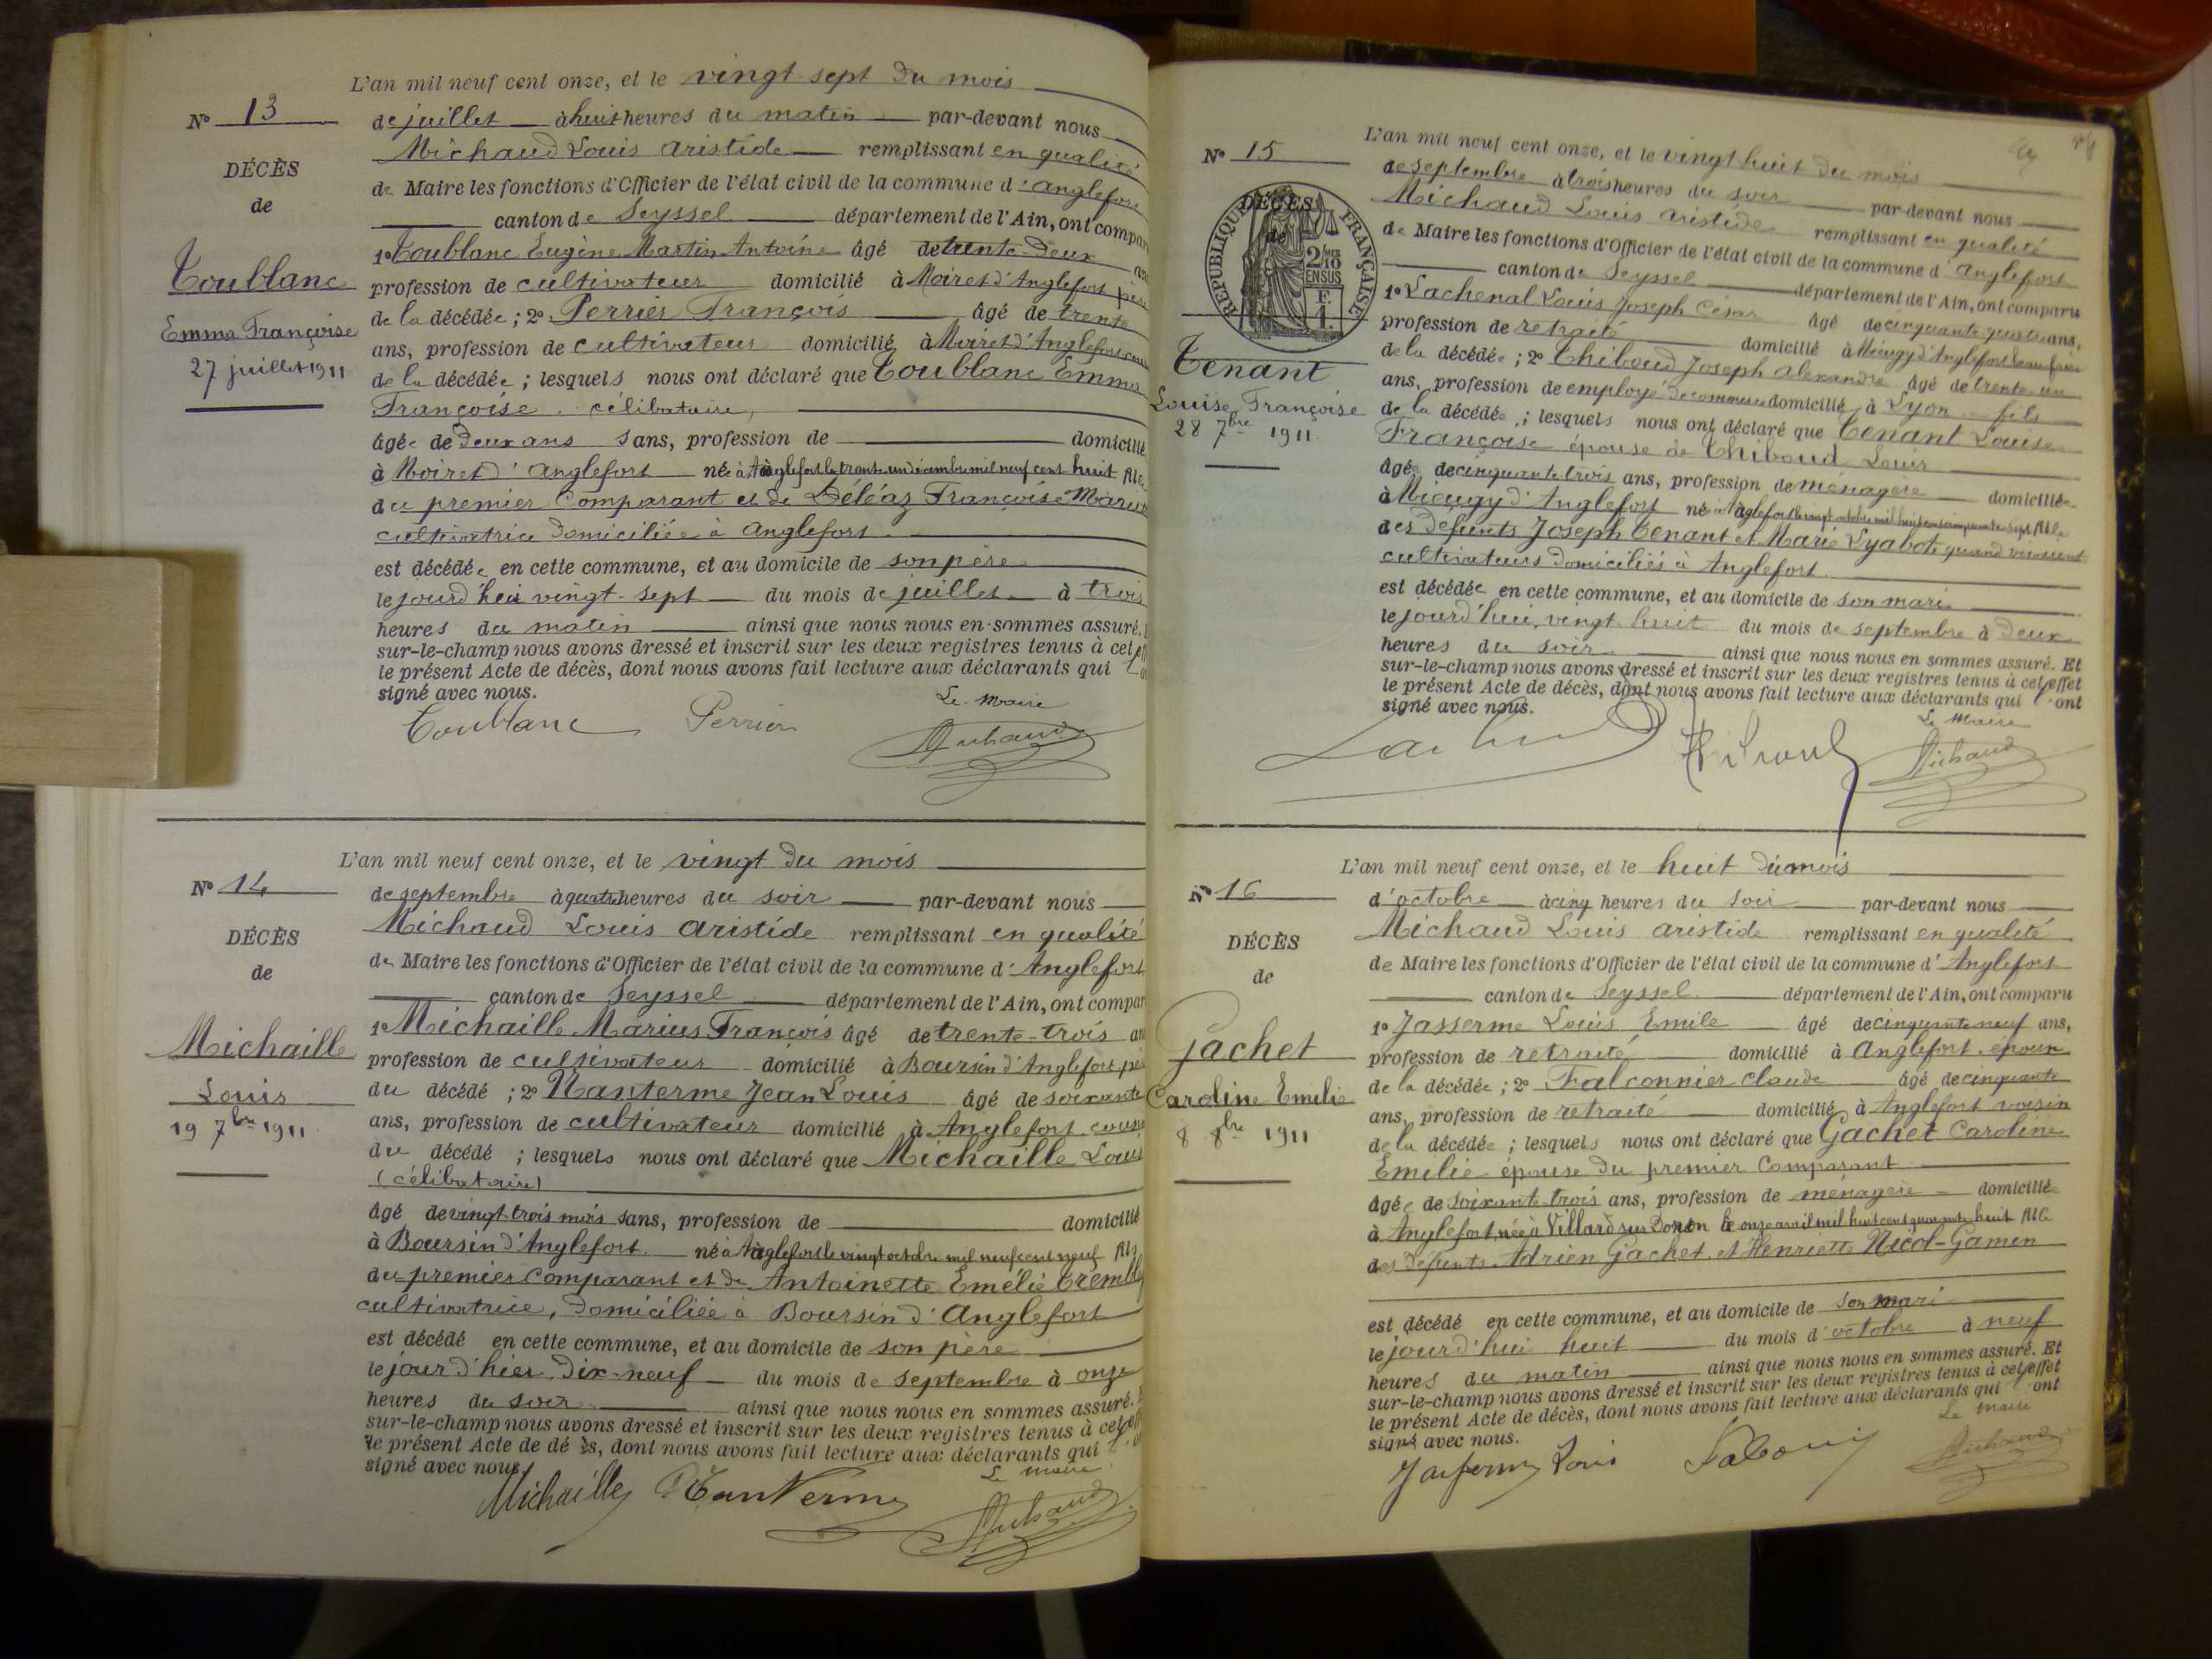 L'an mil neuf cent onze, et le vingt-sept du mois
N° 13
de juillet à huit heures du matin par-devant nous
Michaud Louis Aristide remplissant en qualité
DÉCÈS
de Maire les fonctions d'Officier de l'état civil de la commune d'Anglefort
de
canton de Seyssel département de l'Ain, ont compar
1° Toublanc Eugène Martin Antoine âgé de trente-deux ans
Toublanc
profession de cultivateur domicilié à Moiret d'Anglefort père
de la décédée ; 2° Perrier François âgé de trente
Emma Françoise
ans, profession de cultivateur domicilié à Moiret d'Anglefort
27 juillet 1911
de la décédée ; lesquels nous ont déclaré que Toublanc Emma
Françoise célibataire,
âgée de deux ans sans, profession de domicilié
à Moiret d'Anglefort née à Anglefort le trente un décembre mil neuf cent huit fille
du premier comparant et de Déléaz Françoise Marie
cultivatrice domiciliée à Anglefort
est décédée en cette commune, et au domicile de son père
le jourd'hui vingt-sept du mois de juillet à trois
heures du matin ainsi que nous nous en sommes assuré.
sur-le-champ nous avons dressé et inscrit sur les deux registres tenus à cet eff
le présent Acte de décès, dont nous avons fait lecture aux déclarants qui
signé avec nous.
Le Maire
Toublanc Perrier Michaud
L'an mil neuf cent onze, et le vingt du mois
N° 14
de septembre à quatre heures du soir par-devant nous
Michaud Louis Aristide remplissant en qualité
DÉCÈS
de Maire les fonctions d'Officier de l'état civil de la commune d'Anglefort
de
canton de Seyssel département de l'Ain, ont compar
1° Michaille Marius François âgé de trente-trois an
Michaille
profession de cultivateur domicilié à Boursin d'Anglefort pè
Louis
du décédé ; 2° Nanterme Jean Louis âgé de soixante
19 7bre 1911
ans, profession de cultivateur domicilié à Anglefort cousin
du décédé ; lesquels nous ont déclaré que Michaille Louis
(célibataire)
âgé de vingt-trois mois sans, profession de domicilié
à Boursin d'Anglefort né à Anglefort le vingt octobre mil neuf cent neuf fils
du premier comparant et de Antoinette Emélie Trembl
cultivatrice, domiciliée à Boursin d'Anglefort
est décédé en cette commune, et au domicile de son père
le jour d'hier dix-neuf du mois de septembre à onze
heures du soir ainsi que nous nous en sommes assuré.
sur-le-champ nous avons dressé et inscrit sur les deux registres tenus à cet eff
le présent Acte de dé ès, dont nous avons fait lecture aux déclarants qui
signé avec nous.
Le Maire
Michaille Nanterme Michaud
L'an mil neuf cent onze, et le vingt huit du mois
N° 15
de septembre à trois heures du soir par-devant nous
Michaud Louis Aristide remplissant en qualité
DÉCÈS
de
RÉPUBLIQUE FRANÇAISE
2/10
EN SUS
de Maire les fonctions d'Officier de l'état civil de la commune d'Anglefort
canton de Seyssel département de l'Ain, ont comparu
1° Lachenal Louis Joseph César âgé de cinquante quatre ans,
profession de retraité domicilié à Mieugy d'Anglefort beau frère
Tenant
de la décédée ; 2° Thiboud Joseph Alexandre âgé de trente un
Louise Françoise
ans, profession de employé de commerce domicilié à Lyon fils
28 7bre 1911
de la décédée ; lesquels nous ont déclaré que Tenant Louise
Françoise épouse de Thiboud Louis
âgée de cinquante trois ans, profession de ménagère domiciliée
à Mieugy d'Anglefort née à Anglefort le vingt octobre mil huit cent cinquante sept fille
des défunts Joseph Tenant et Marie Lyabot quand vivaient
cultivateurs domiciliés à Anglefort
est décédée en cette commune, et au domicile de son mari
le jourd'hui, vingt huit du mois de septembre à deux
heures du soir ainsi que nous nous en sommes assuré. Et
sur-le-champ nous avons dressé et inscrit sur les deux registres tenus à cet effet
le présent Acte de décès, dont nous avons fait lecture aux déclarants qui ont
signé avec nous.
Le Maire
Thiboud Michaud
L'an mil neuf cent onze, et le huit du mois
N° 16
d'octobre à cinq heures du soir par-devant nous
Michaud Louis Aristide remplissant en qualité
DÉCÈS
de Maire les fonctions d'Officier de l'état civil de la commune d'Anglefort
de
canton de Seyssel département de l'Ain, ont comparu
1° Jasserme Louis Emile âgé de cinquante neuf ans,
Gachet
profession de retraité domicilié à Anglefort époux
de la décédée ; 2° Falconnier Claude âgé de cinquante
Caroline Emilie
ans, profession de retraité domicilié à Anglefort voisin
8 8bre 1911
de la décédée ; lesquels nous ont déclaré que Gachet Caroline
Emelie épouse du premier comparant
âgée de soixante-trois ans, profession de ménagère domiciliée
à Anglefort, née à Villard sur Doron le onze avril mil huit cent quarante huit fille
des défunts Adrien Gachet et Henriette Nicol-Gamen
est décédé en cette commune, et au domicile de son mari
le jourd'hui huit du mois d'octobre à neuf
heures du matin ainsi que nous nous en sommes assuré. Et
sur-le-champ nous avons dressé et inscrit sur les deux registres tenus à cet effet
le présent Acte de décès, dont nous avons fait lecture aux déclarants qui ont
signé avec nous.
Le Maire
Jasserme Louis Michaud